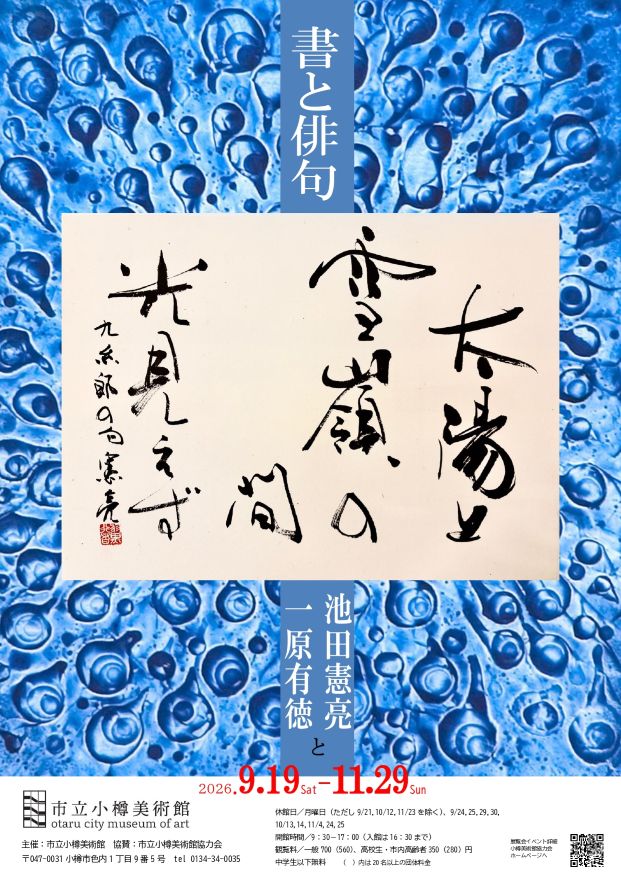 書と俳句
太陽と
雪嶺の
間
光見えず
九糸郎の句 憲亮
池田憲亮
と
一原有徳
2026.9.19Sat-11.29Sun
市立小樽美術館
otaru city museum of art
主催:市立小樽美術館 協賛:市立小樽美術館協力会
〒047-0031 小樽市色内1丁目9番5号 tel 0134-34-0035
休館日/月曜日(ただし9/21,10/12,11/23を除く)、9/24,25,29,30,
10/13,14,11/4,24,25
開館時間/9:30-17:00(入館は16:30まで)
観覧料/一般700(560)、高校生・市内高齢者350(280)円
中学生以下無料 ( )内は20名以上の団体料金
展覧会イベント詳細
小樽美術館協力会
ホームページへ